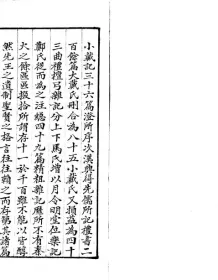 小戴記三十六篇澄所序次漢興得先儒所記禮書二
百餘篇大戴氏刪合為八十五小戴氏又損益為四十
三曲禮檀弓雜記分上下馬氏增以月令明堂位樂記
鄭氏從而為之注總四十九篇精粗雜記靡所不有秦
火之餘區區掇拾所謂存十一於千百雖不能以皆醇
然先王之遺制聖賢之格言往往賴之而存第其諸篇